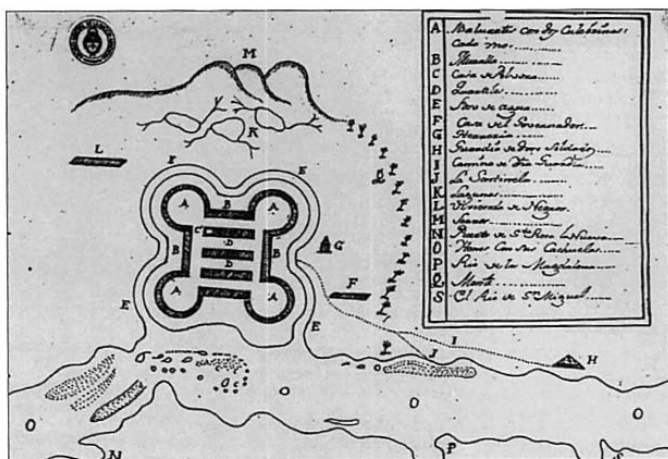 M
K
L
E
E
A
B
A
C
D
B
D
B
G
Q
A
A
F
E
E
J
I
H
O
O
O
O
N
P
S
A Baluartes con dos Culebrinas
cada uno
B Muralla
C Casa de Polvora
D
E Foso de agua
F Casa del Governador
G
H Guardia de dos Soldados
I Camino de dha Guardia
J La Sentinela
K Lagunas
L Vivienda de Negros
M
N de Sta Rosa la Nueva
O con sus Cachuelas
P Rio de la Magdalena
Q Monte
S El Rio de Sn Miguel